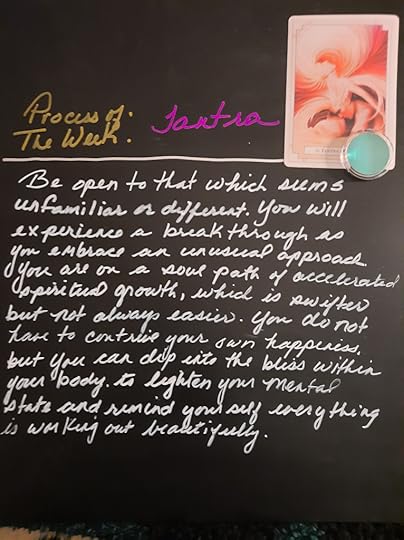 Process of:
The Week: Tantra
Be open to that which seems
unfamiliar or different. You will
experience a breakthrough as
you embrace an unusual approach.
You are on a soul path of accelerated
spiritual growth, which is swifter
but not always easier. You do not
have to contrive your own happiness,
but you can dip into the bliss within
your body. to lighten your mental
state and remind yourself everything
is working out beautifully.